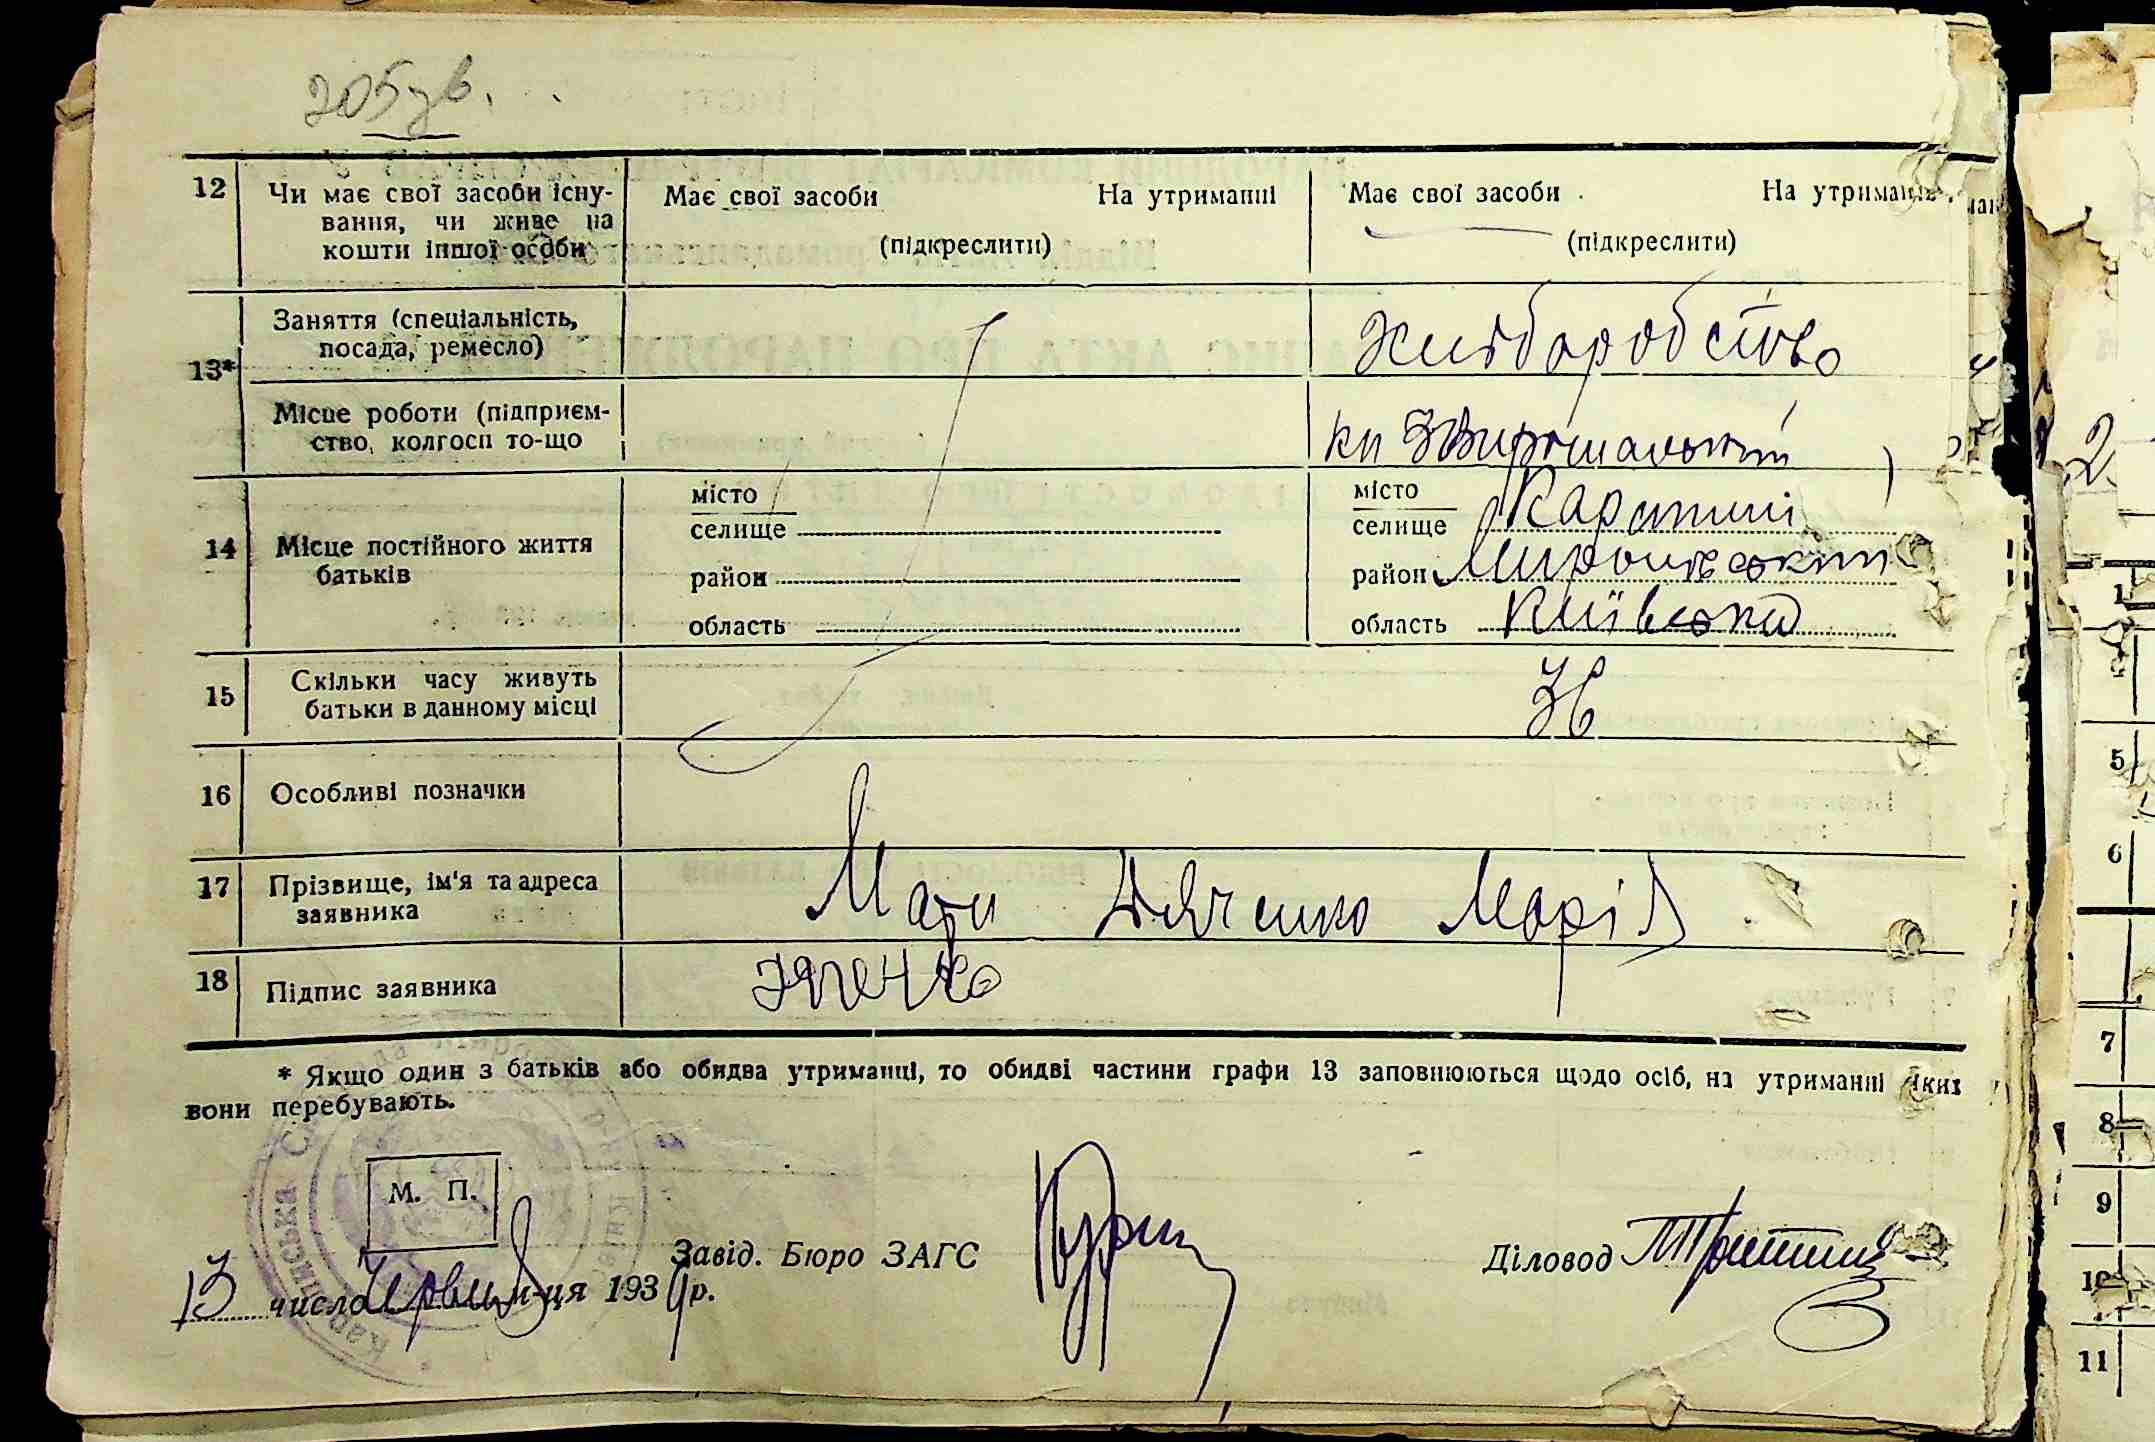 205 зв.
12 Чи має свої засоби існу-
вання, чи живе на
кошти іншої особи
Має свої засоби На утриманні
(підкреслити)
Має свої засоби На утриманні
(підкреслити)
13* Заняття (спеціальність,
посада, ремесло)
Хліборобство
Місце роботи (підприєм-
ство, колгосп то-що
кп
14 Місце постійного життя
батьків
місто
селище
район
область
місто
селище Карапиші
район Миронівський
область Київська
15 Скільки часу живуть
батьки в данному місці
16 Особливі позначки
17 Прізвище, ім'я та адреса
заявника
Мати Дяченко Марія
18 Підпис заявника
* Якщо один з батьків або обидва утриманці, то обидві частини графи 13 заповнюються щодо осіб, на утриманні яких
вони перебувають.
М. П.
Завід. Бюро ЗАГС
Діловод
13 числа Червня м-ця 1939 р.
2
1
5
6
7
8
9
10
11